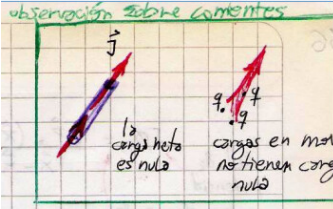 observación sobre corrientes
J
la
carga neta
es nula
q
q
q
cargas en mov
no tienen carg
nula